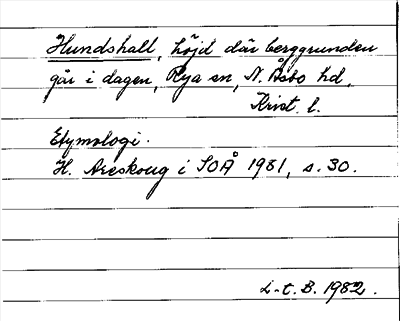 Hundshall, höjd där berggrunden
går i dagen, Rya sn, N. Åsbo hd,
Krist. l.
Etymologi.
H. Areskoug i SOÅ 1981, s. 30.
L-t. B. 1982.